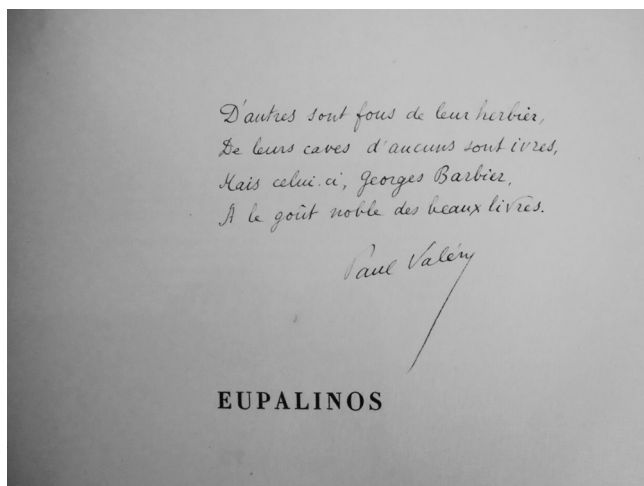 D'autres sont fous de leur herbier,
De leurs caves d'aucuns sont ivres,
Mais celui-ci, Georges Barbier,
A le goût noble des beaux livres.
Paul Valéry
EUPALINOS